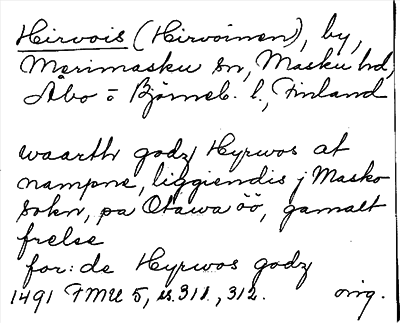 Hirvois (Hirvoinen), by,
Merimasku sn, Masku hd,
Åbo o Björneb. l., Finland
waarth godz Hyrwos at
nampne, liggiendis j Masko
sokn, pa Otawa öö, gamalt
frelse
for: de Hyrwos godz
1491 FMU 5, s. 311, 312. orig.